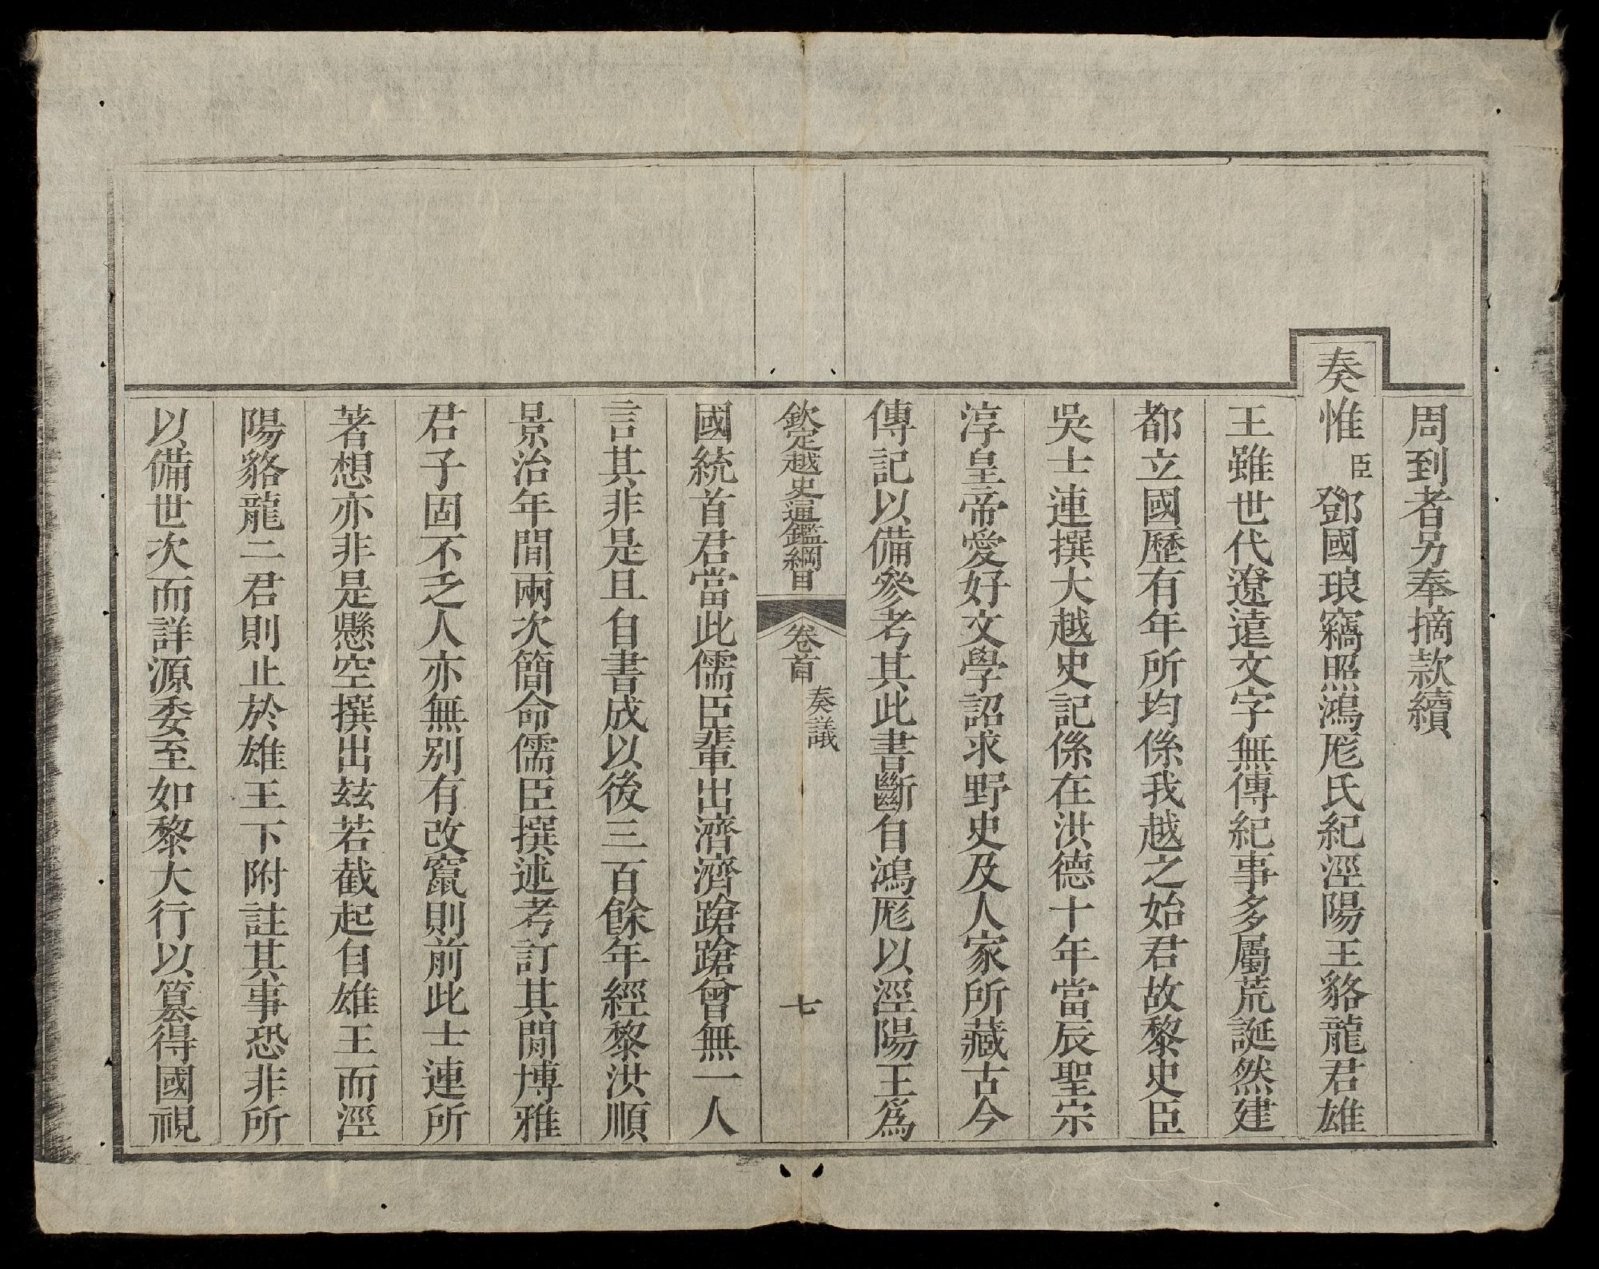 周到者另奉摘款續
奏惟臣鄧國琅竊照鴻厖氏紀涇陽王貉龍君雄
王雖世代遼遠文字無傳紀事多屬荒誕然建
都立國歷有年所均係我越之始君故黎史臣
吳士連撰大越史記係在洪德十年當辰聖宗
淳皇帝愛好文學詔求野史及人家所藏古今
傳記以備參考其此書斷自鴻厖以涇陽王爲
欽定越史通鑑綱目 卷首 奏議 七
國統首君當此儒臣輩出濟濟蹌蹌曾無一人
言其非是且自書成以後三百餘年經黎洪順
景治年間兩次簡命儒臣撰述考訂其間博雅
君子固不乏人亦無别有改竄則前此士連所
著想亦非是懸空撰出玆若截起自雄王而涇
陽貉龍二君則止於雄王下附註其事恐非所
以備世次而詳源委至如黎大行以簒得國視